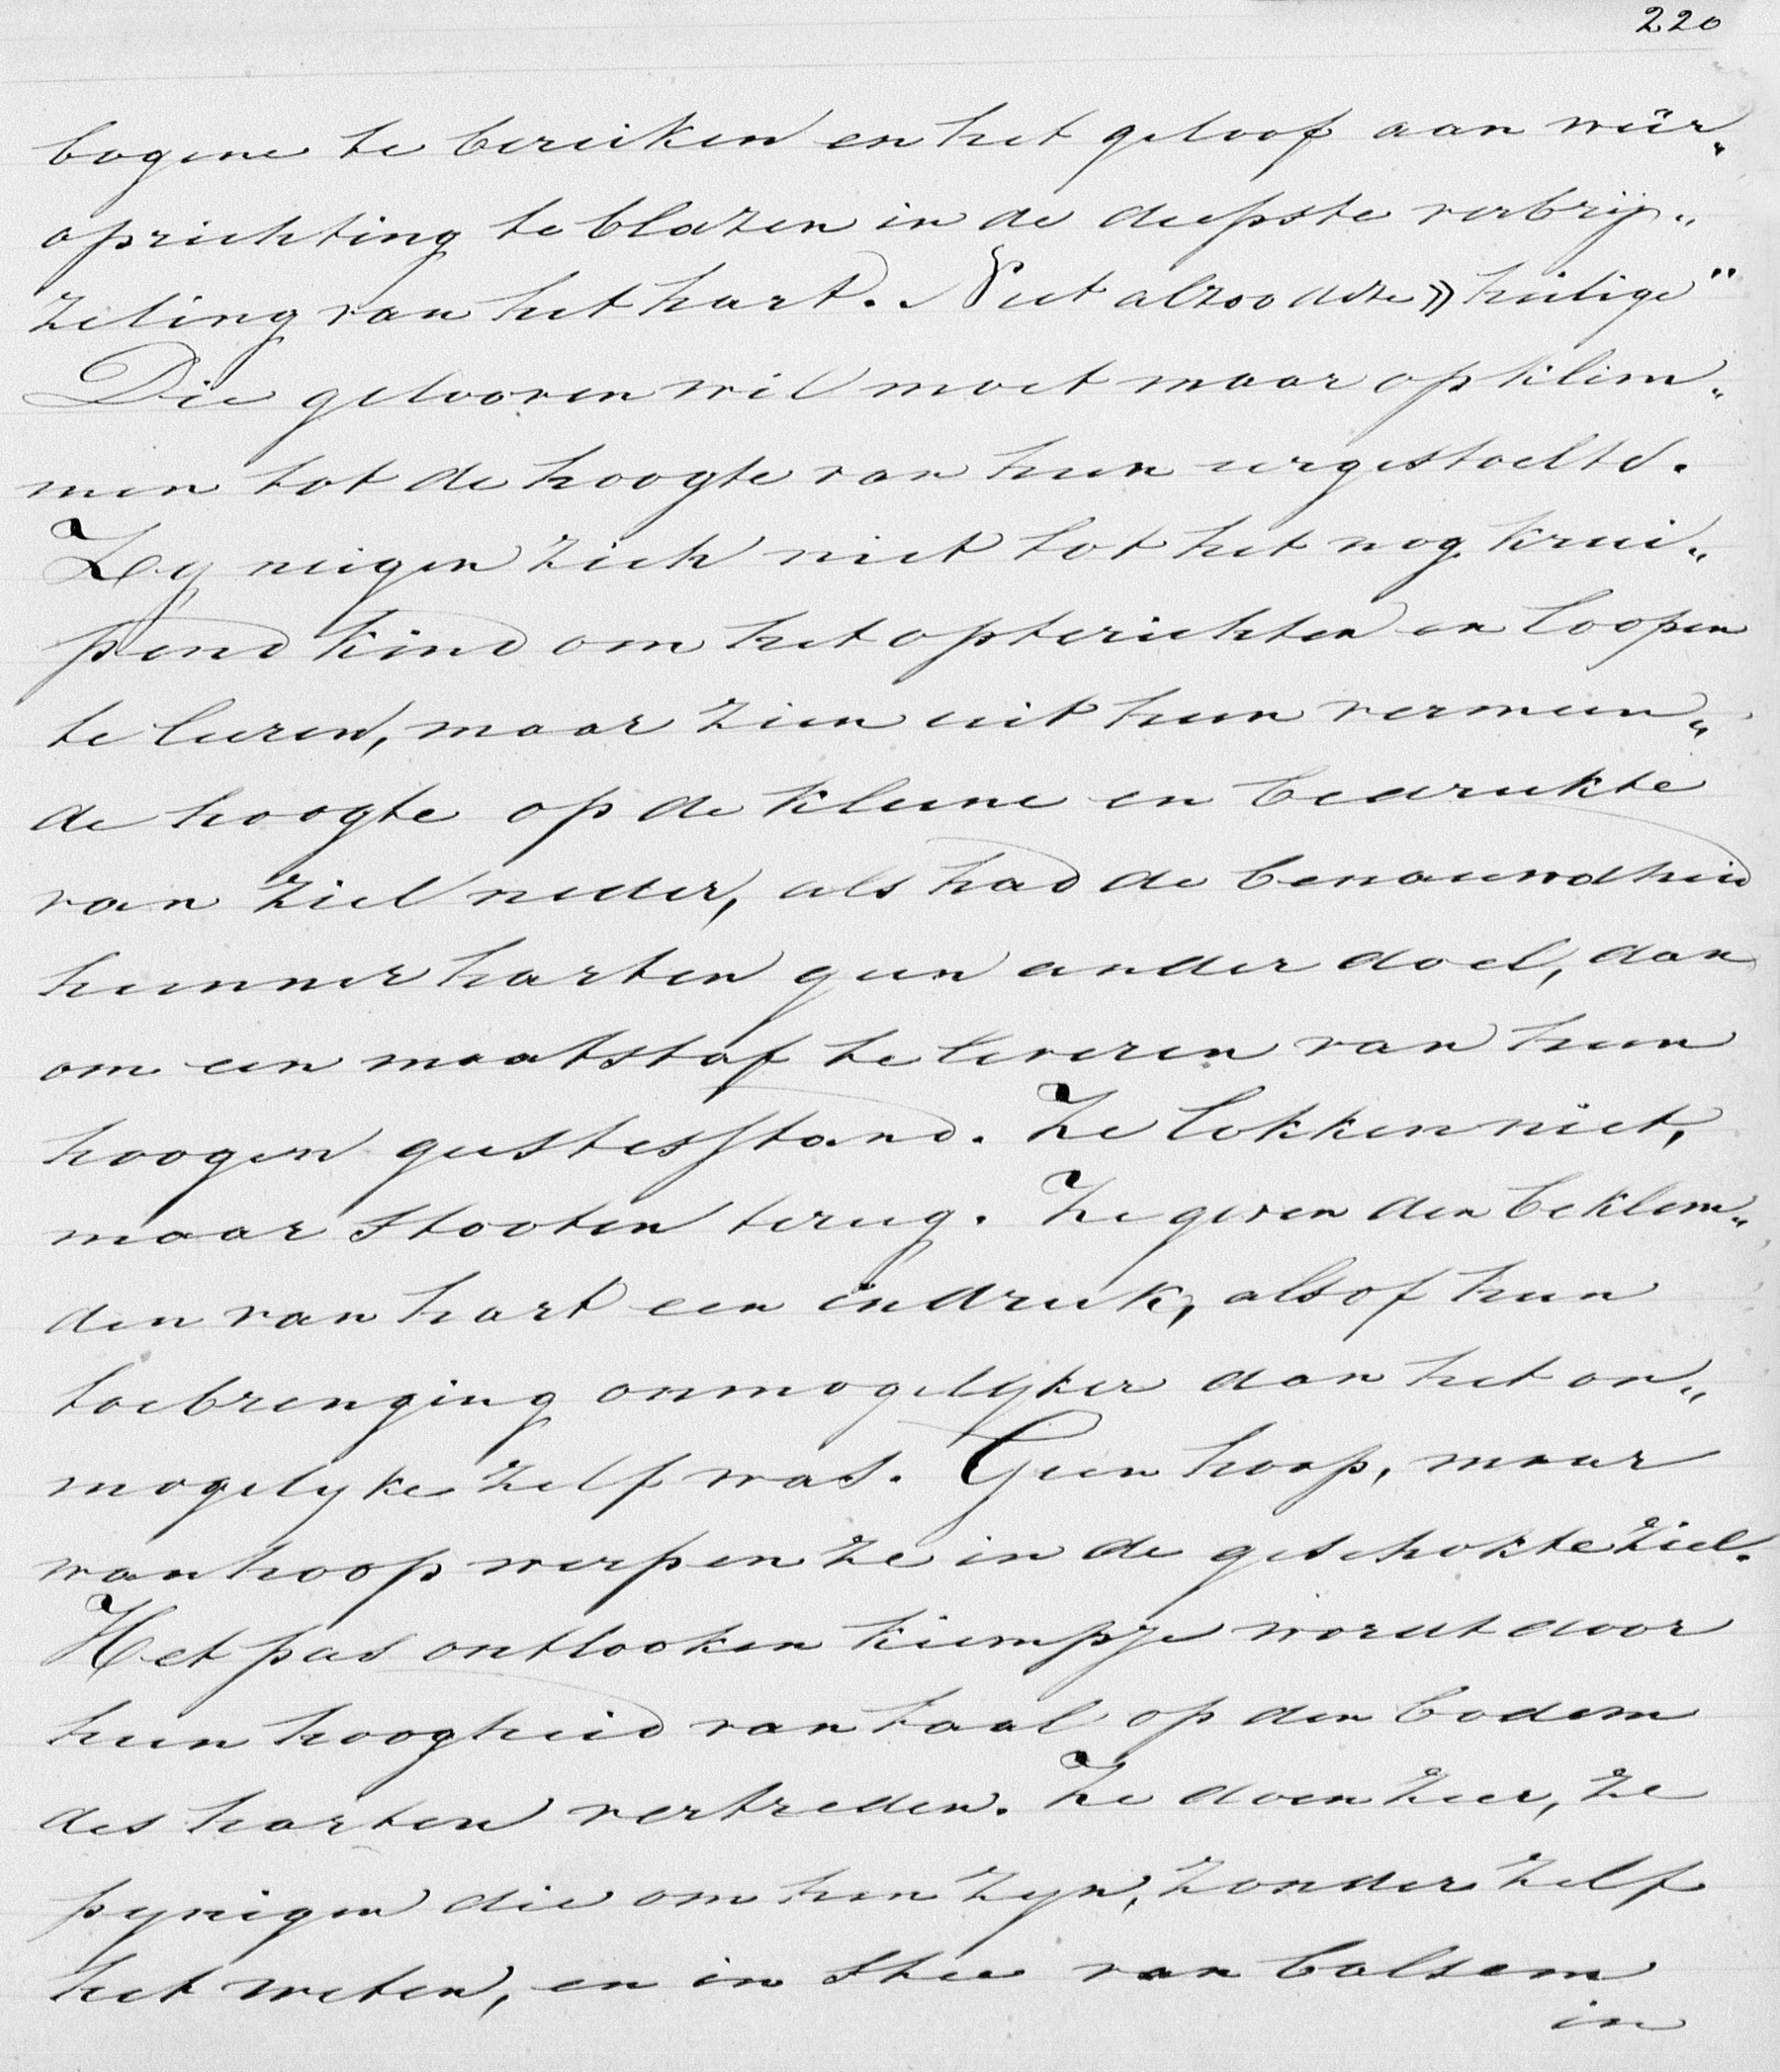 220
bogene te bereiken en het geloof aan weêr„
oprichting te blazen in de diepste verbrij„
zeling van het hart. Niet alzoo deze » heilige"
Die gelooven wil moet maar opklim„
men tot de hoogte van hun eergestoelte.
Zy neigen zich niet tot het nog krui„
pend kind om het opterichten en loopen
te leeren, maar zien uit hun vermeen„
de hoogte op de kleine en bedrukte
van ziel neder, als had de benauwdheid
hunner harten geen ander doel, dan
om een maatstaf te leveren van hun
hoogen geestesstand. Ze lokken niet,
maar stooten terug. Ze geven den beklem„
den van hart een indruk, alsof hun
toebrenging onmogelyker dan het on„
mogelyke zelf was. Geen hoop, maar
wanhoop werpen ze in de geschokte ziel.
Het pas ontlooken kiempje wordt door
hun hoogheid van taal op den bodem
des harten vertreden. Ze doen zeer, ze
pynigen die om hen zyn, zonder zelf
het weten, en in stee van balsem
in